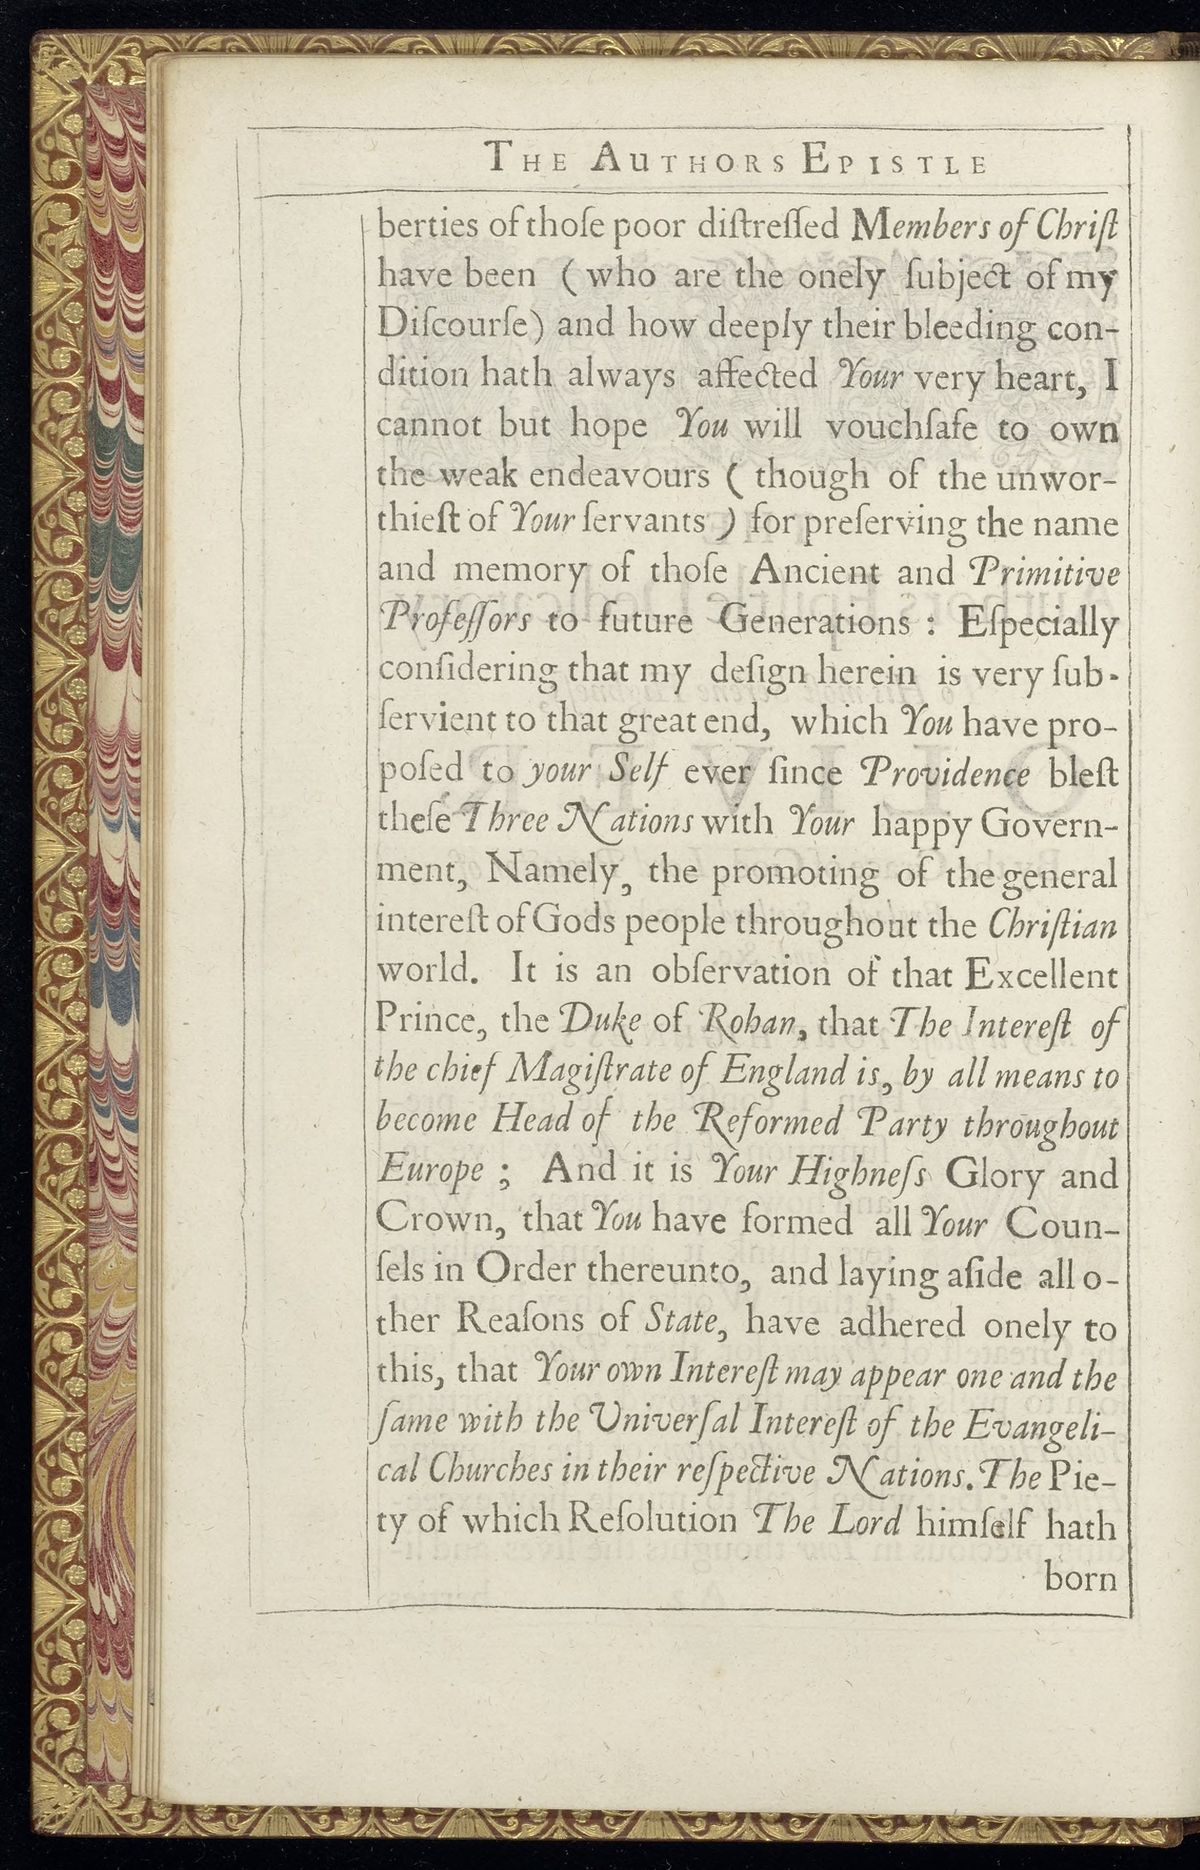 THE AUTHORS EPISTLE
berties of thoſe poor diſtreſſed Members of Chriſt
have been ( who are the onely ſubject of my
Diſcourſe) and how deeply their bleeding con-
dition hath always affected Your very heart, I
cannot but hope You will vouchſafe to own
the weak endeavours ( though of the unwor-
thieſt of Your ſervants ) for preſerving the name
and memory of thoſe Ancient and Primitive
Profeſſors to future Generations : Eſpecially
conſidering that my deſign herein is very ſub-
ſervient to that great end, which You have pro-
poſed to your Self ever ſince Providence bleſt
theſe Three Nations with Your happy Govern-
ment, Namely, the promoting of the general
intereſt of Gods people throughout the Chriſtian
world. It is an obſervation of that Excellent
Prince, the Duke of Rohan, that The Intereſt of
the chief Magiſtrate of England is, by all means to
become Head of the Reformed Party throughout
Europe ; And it is Your Highneſs Glory and
Crown, that You have formed all Your Coun-
ſels in Order thereunto, and laying aſide all o-
ther Reaſons of State, have adhered onely to
this, that Your own Intereſt may appear one and the
ſame with the Univerſal Intereſt of the Evangeli-
cal Churches in their reſpective Nations. The Pie-
ty of which Reſolution The Lord himſelf hath
born